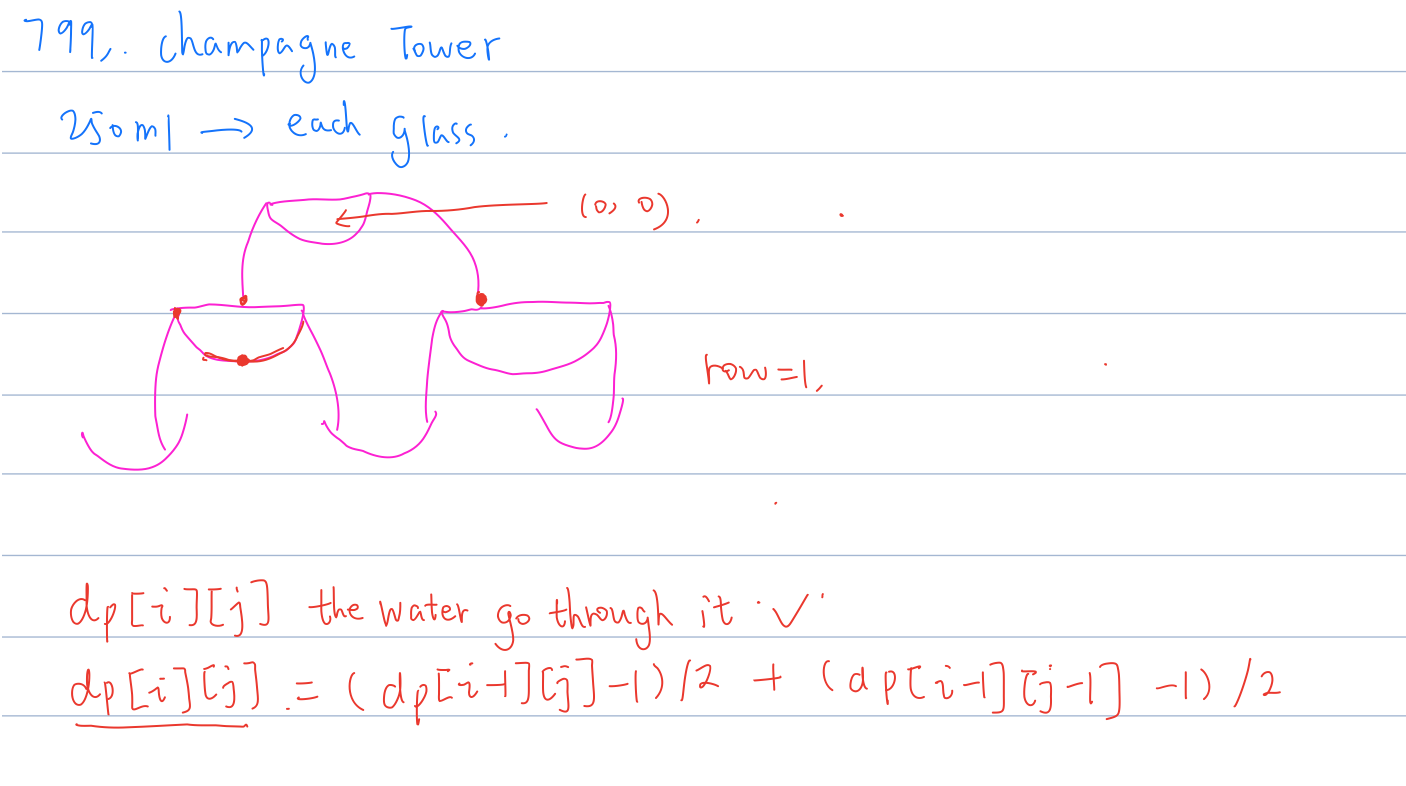 799,. Champagne Tower
250ml → each glass.
(0, 0).
row=1,
dp[i][j] the water go through it. ✓
dp[i][j] = (dp[i-1][j]-1)/2 + (dp[i-1][j-1] -1)/2